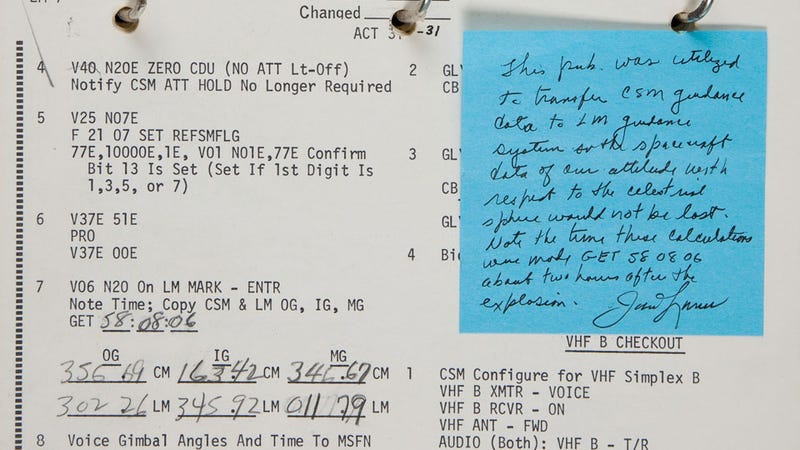 LM 7
Changed
ACT 31 -31
4 V40 N20E ZERO CDU (NO ATT Lt-Off)
Notify CSM ATT HOLD No Longer Required
5 V25 N07E
F 21 07 SET REFSMFLG
77E,10000E,1E, V01 N01E,77E Confirm
Bit 13 Is Set (Set If 1st Digit Is
1,3,5, or 7)
6 V37E 51E
PRO
V37E 00E
7 V06 N20 On LM MARK - ENTR
Note Time; Copy CSM & LM OG, IG, MG
GET 58:08:06
OG IG MG
CM CM CM
302 26 LM 345.92 LM 011 79 LM
8 Voice Gimbal Angles And Time To MSFN
2 GLY
CB
3 GLY
CB
GLY
4 Bio
This pub. was utilized
to transfer CSM guidance
data to LM guidance
system so the spacecraft
data of our attitude with
respect to the celestrial
sphere would not be lost.
Note the time these calculations
were made GET 58 08 06
about two hours after the
explosion.
VHF B CHECKOUT
1 CSM Configure for VHF Simplex B
VHF B XMTR - VOICE
VHF B RCVR - ON
VHF ANT - FWD
AUDIO (Both): VHF B - T/R